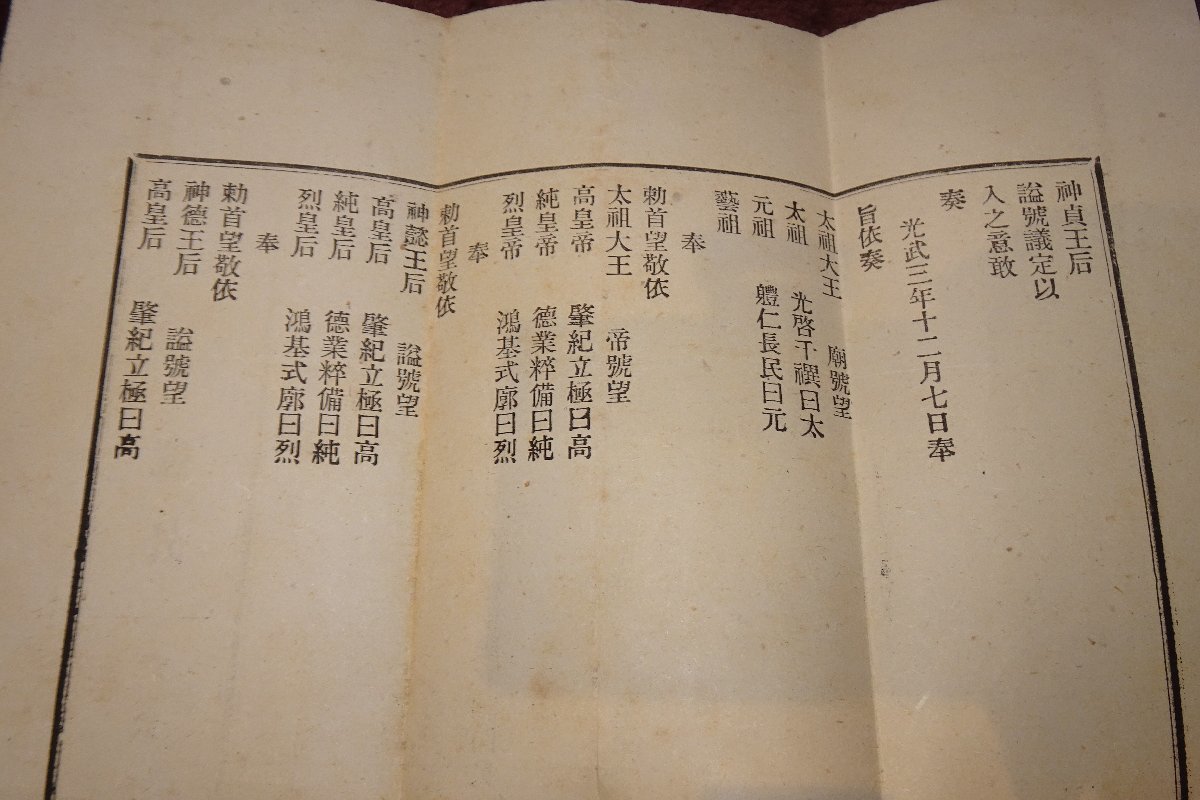 神貞王后
謚號議定以
入之意敢
奏
光武三年十二月七日奉
旨依奏
太祖大王 廟號望
太祖 光啓干禩曰太
元祖 軆仁長民曰元
藝祖
奉
勅首望敬依
太祖大王 帝號望
高皇帝 肇紀立極曰高
純皇帝 德業粹備曰純
烈皇帝 鴻基式廓曰烈
奉
勅首望敬依
神懿王后 謚號望
高皇后 肇紀立極曰高
純皇后 德業粹備曰純
烈皇后 鴻基式廓曰烈
奉
勅首望敬依
神德王后 謚號望
高皇后 肇紀立極曰高